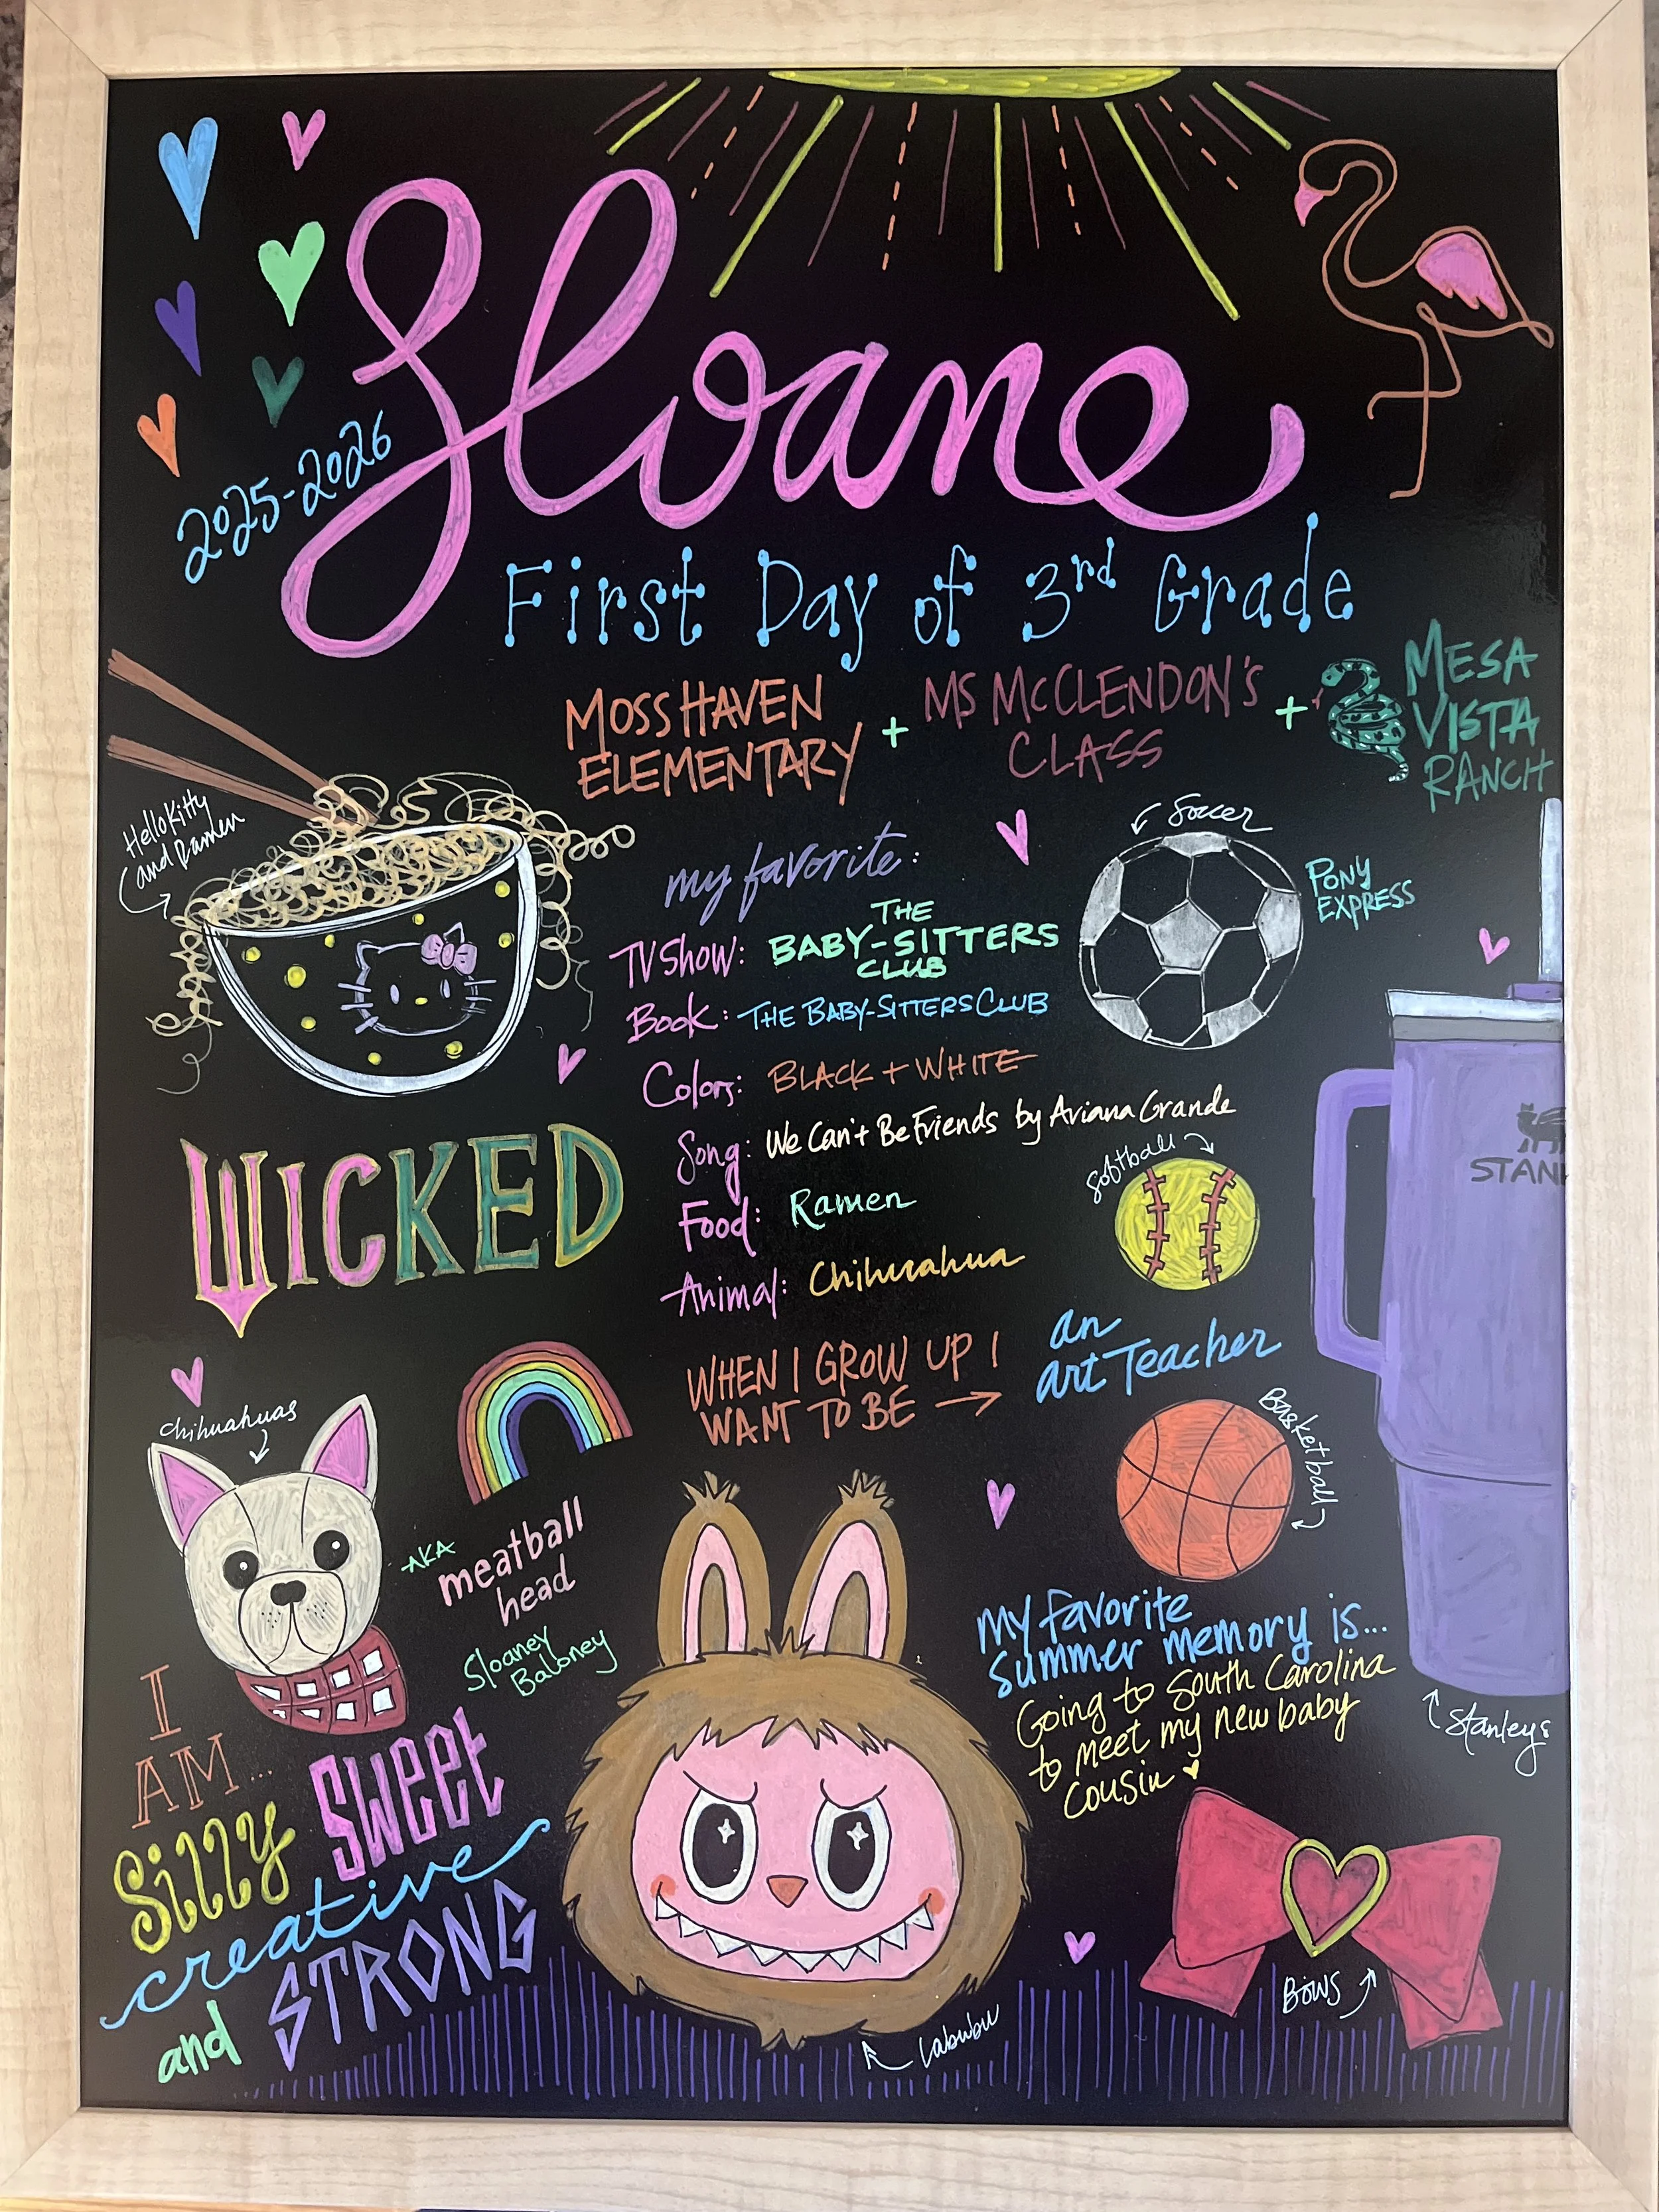 Sloane
2025-2026
First Day of 3rd Grade
MOSS HAVEN
ELEMENTARY
+
MS MCCLENDON'S
CLASS
+
MESA
VISTA
RANCH
Hello Kitty
and Ramen
my favorite:
TV Show: THE
BABY-SITTERS
CLUB
Book: THE BABY-SITTERS CLUB
Colors: BLACK + WHITE
Song: We Can't Be Friends by Ariana Grande
Food: Ramen
Animal: Chihuahua
Soccer
PONY
EXPRESS
softball
STAN
WICKED
WHEN I GROW UP I
WANT TO BE →
an
art Teacher
Basketball
chihuahuas
AKA
meatball
head
Sloaney
Baloney
my favorite
summer memory is...
Going to South Carolina
to meet my new baby
cousin
Stanleys
I
AM...
Silly
Sweet
creative
and
STRONG
Labubu
BOWS